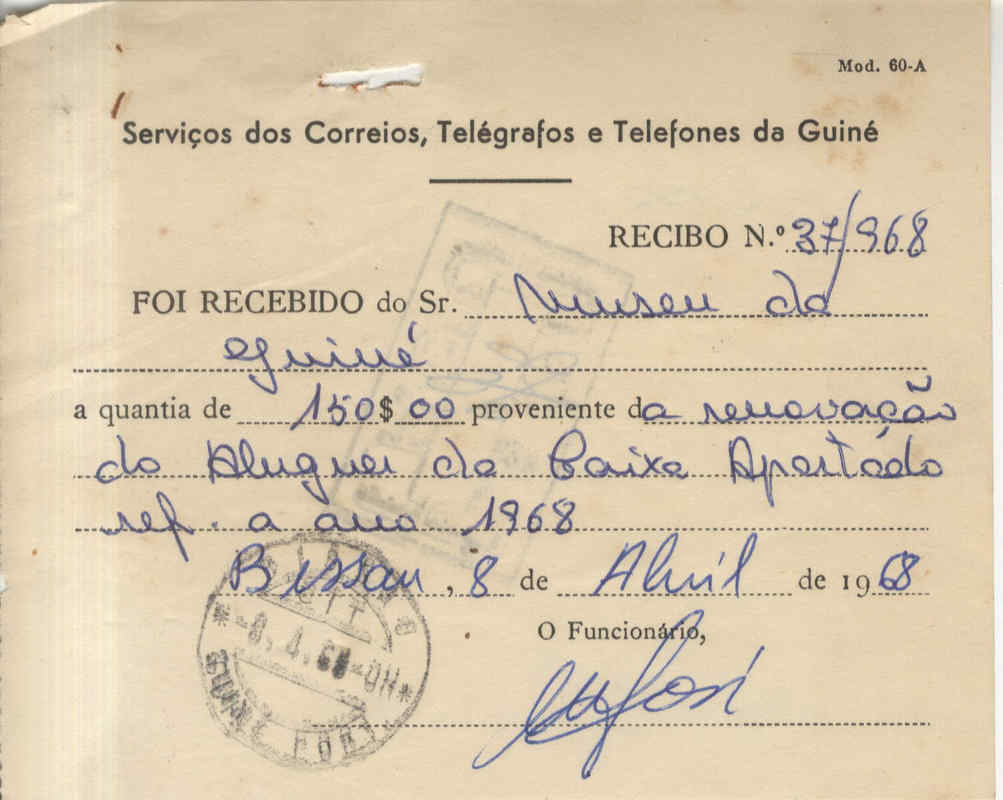 Mod. 60-A
Serviços dos Correios, Telégrafos e Telefones da Guiné
RECIBO N.º 37/968
FOI RECEBIDO do Sr. Museu da
Guiné
a quantia de 150$00 proveniente da renovação
do Aluguer da Caixa Apartado
ref. a ano 1968
Bissau, 8 de Abril de 1968
O Funcionário,
-8.4.68-
GUINÉ PORT.